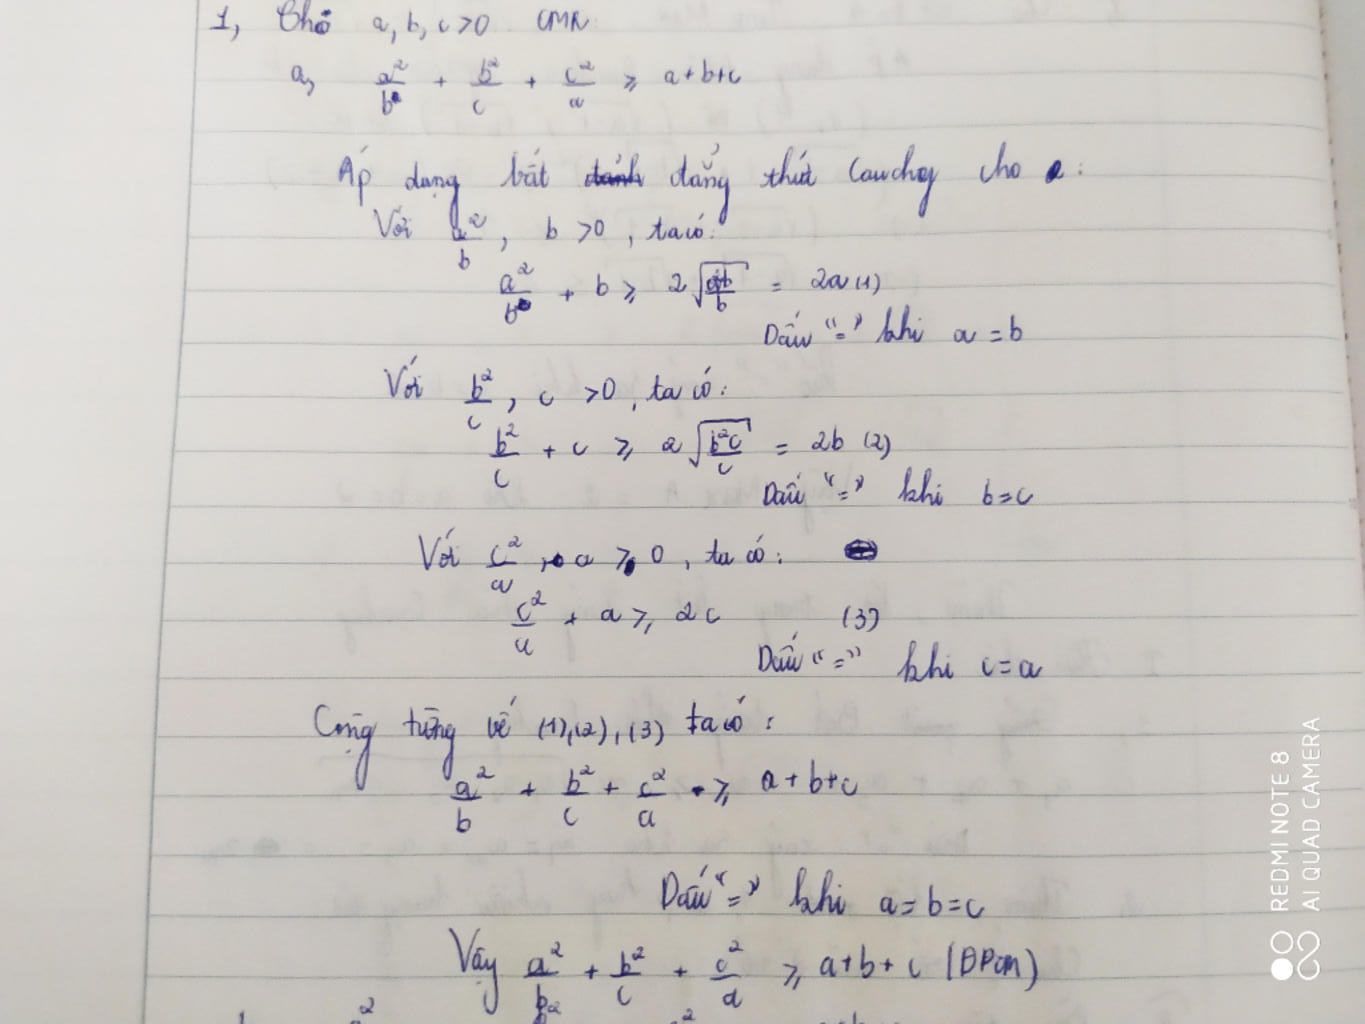 1, Cho a, b, c >0 CMR
a, a²/b + b²/c + c²/a ≥ a+b+c
Áp dụng bất đẳng thức Cauchy cho :
Với a²/b , b >0 , ta có:
a²/b + b ≥ 2√(a²b/b) = 2a (1)
Dấu "=" khi a = b
Với b²/c , c >0 , ta có:
b²/c + c ≥ 2√(b²c/c) = 2b (2)
Dấu "=" khi b=c
Với c²/a , a > 0 , ta có:
c²/a + a ≥ 2c (3)
Dấu "=" khi c=a
Cộng từng vế (1),(2),(3) ta có :
a²/b + b²/c + c²/a ≥ a+b+c
Dấu "=" khi a=b=c
Vậy a²/b + b²/c + c²/a ≥ a+b+c (ĐPCM)
REDMI NOTE 8
AI QUAD CAMERA